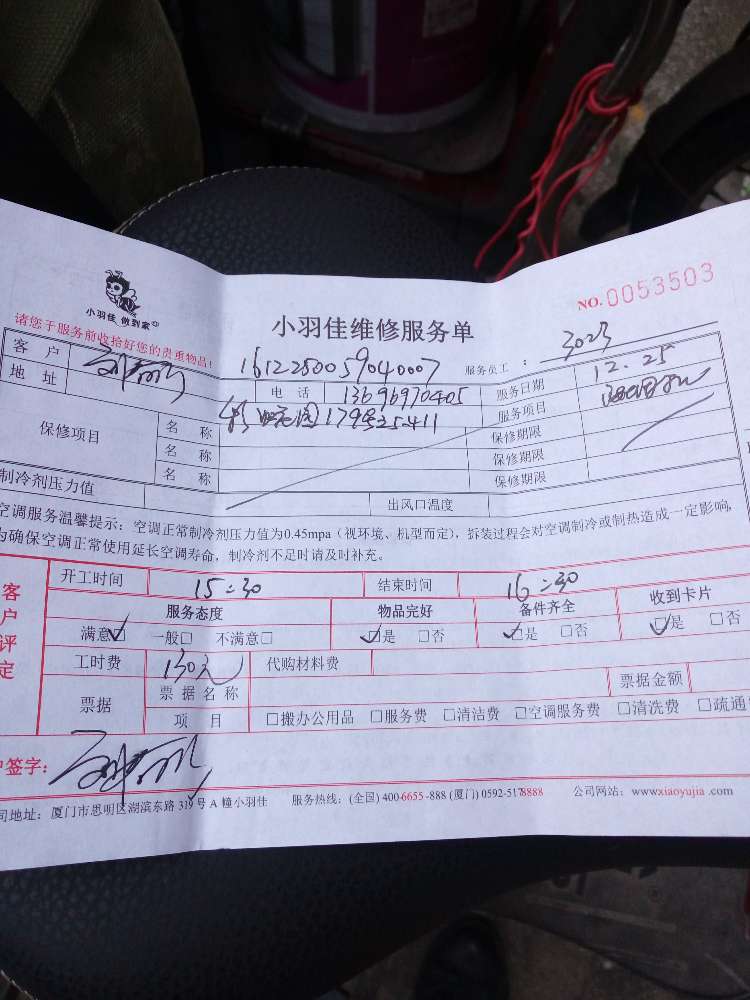 小羽佳 做到家
NO.0053503
请您于服务前收拾好您的贵重物品！
小羽佳维修服务单
1612280059040007
服务员工： 3023
客 户
电 话 13696970405 服务日期 12.25
地 址 179号25-411 服务项目
保修项目 名 称 保修期限
名 称 保修期限
名 称 保修期限
制冷剂压力值 出风口温度
空调服务温馨提示：空调正常制冷剂压力值为0.45mpa（视环境、机型而定），拆装过程会对空调制冷或制热造成一定影响，
为确保空调正常使用延长空调寿命，制冷剂不足时请及时补充。
客户评定
开工时间 15:30 结束时间 16:30
服务态度 物品完好 备件齐全 收到卡片
满意☑ 一般□ 不满意□ ☑是 □否 ☑是 □否 ☑是 □否
工时费 130元 代购材料费
票据 票 据 名 称 票据金额
项 目 □搬办公用品 □服务费 □清洁费 □空调服务费 □清洗费 □疏通
户签字：
司地址：厦门市思明区湖滨东路 319 号 A 幢小羽佳 服务热线：(全国) 400-6655-888 (厦门) 0592-5178888 公司网站：www.xiaoyujia.com